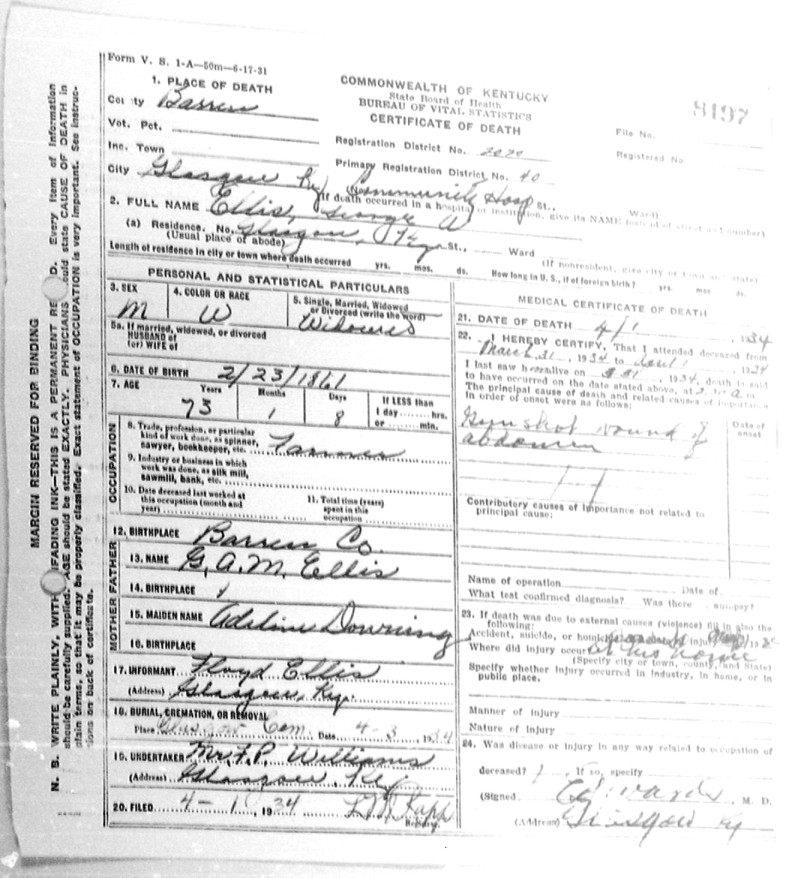 Form V. S. 1-A—50m—6-17-31
1. PLACE OF DEATH
County Barren
Vot. Pct.
Inc. Town
City Glasgow Ky
COMMONWEALTH OF KENTUCKY
State Board of Health
BUREAU OF VITAL STATISTICS
CERTIFICATE OF DEATH
8197
File No.
Registered No.
Registration District No. 2020
Primary Registration District No. 40
Community Hosp St., Ward)
(If death occurred in a hospital or institution, give its NAME instead of street and number)
2. FULL NAME Ellis, George A
(a) Residence. No. Glasgow, Ky St., Ward
(Usual place of abode) (If nonresident, give city or town and state)
Length of residence in city or town where death occurred yrs. mos. ds. How long in U. S., if of foreign birth? yrs. mos. ds.
PERSONAL AND STATISTICAL PARTICULARS
3. SEX M
4. COLOR OR RACE W
5. Single, Married, Widowed
or Divorced (write the word)
Widowed
5a. If married, widowed, or divorced
HUSBAND of
(or) WIFE of
6. DATE OF BIRTH 2/23/1861
7. AGE Years Months Days If LESS than
73 1 8 1 day ...... hrs.
or ...... min.
OCCUPATION
8. Trade, profession, or particular
kind of work done, as spinner,
sawyer, bookkeeper, etc. Farmer
9. Industry or business in which
work was done, as silk mill,
sawmill, bank, etc.
10. Date deceased last worked at
this occupation (month and
year)
11. Total time (years)
spent in this
occupation
12. BIRTHPLACE Barren Co.
FATHER
13. NAME G. A. M. Ellis
14. BIRTHPLACE
MOTHER
15. MAIDEN NAME Adeline Downing
16. BIRTHPLACE
17. INFORMANT Floyd Ellis
(Address) Glasgow, Ky.
18. BURIAL, CREMATION, OR REMOVAL
Place Glasgow Cem. Date 4-3 1934
19. UNDERTAKER Mr. F. P. Williams
(Address) Glasgow, Ky
20. FILED 4-1, 1934
Registrar.
MEDICAL CERTIFICATE OF DEATH
21. DATE OF DEATH 4/1 1934
22. I HEREBY CERTIFY, That I attended deceased from
March 31, 1934 to 1, 1934
I last saw him alive on 31, 1934, death is said
to have occurred on the date stated above, at
The principal cause of death and related causes of importance
in order of onset were as follows:
Date of
onset
Gunshot wound of
abdomen
Contributory causes of importance not related to
principal cause:
Name of operation Date of
What test confirmed diagnosis? Was there autopsy?
23. If death was due to external causes (violence) fill in also the
following:
Accident, suicide, or homicide injury 19
Where did injury occur at his home
(Specify city or town, county, and State)
Specify whether injury occurred in industry, in home, or in
public place.
Manner of injury
Nature of injury
24. Was disease or injury in any way related to occupation of
deceased? If so, specify
(Signed , M. D.
(Address) Glasgow Ky
MARGIN RESERVED FOR BINDING
N. B. WRITE PLAINLY, WITH UNFADING INK—THIS IS A PERMANENT RECORD. Every item of information
should be carefully supplied. AGE should be stated EXACTLY. PHYSICIANS should state CAUSE OF DEATH in
plain terms, so that it may be properly classified. Exact statement of OCCUPATION is very important. See instruc-
tions on back of certificate.